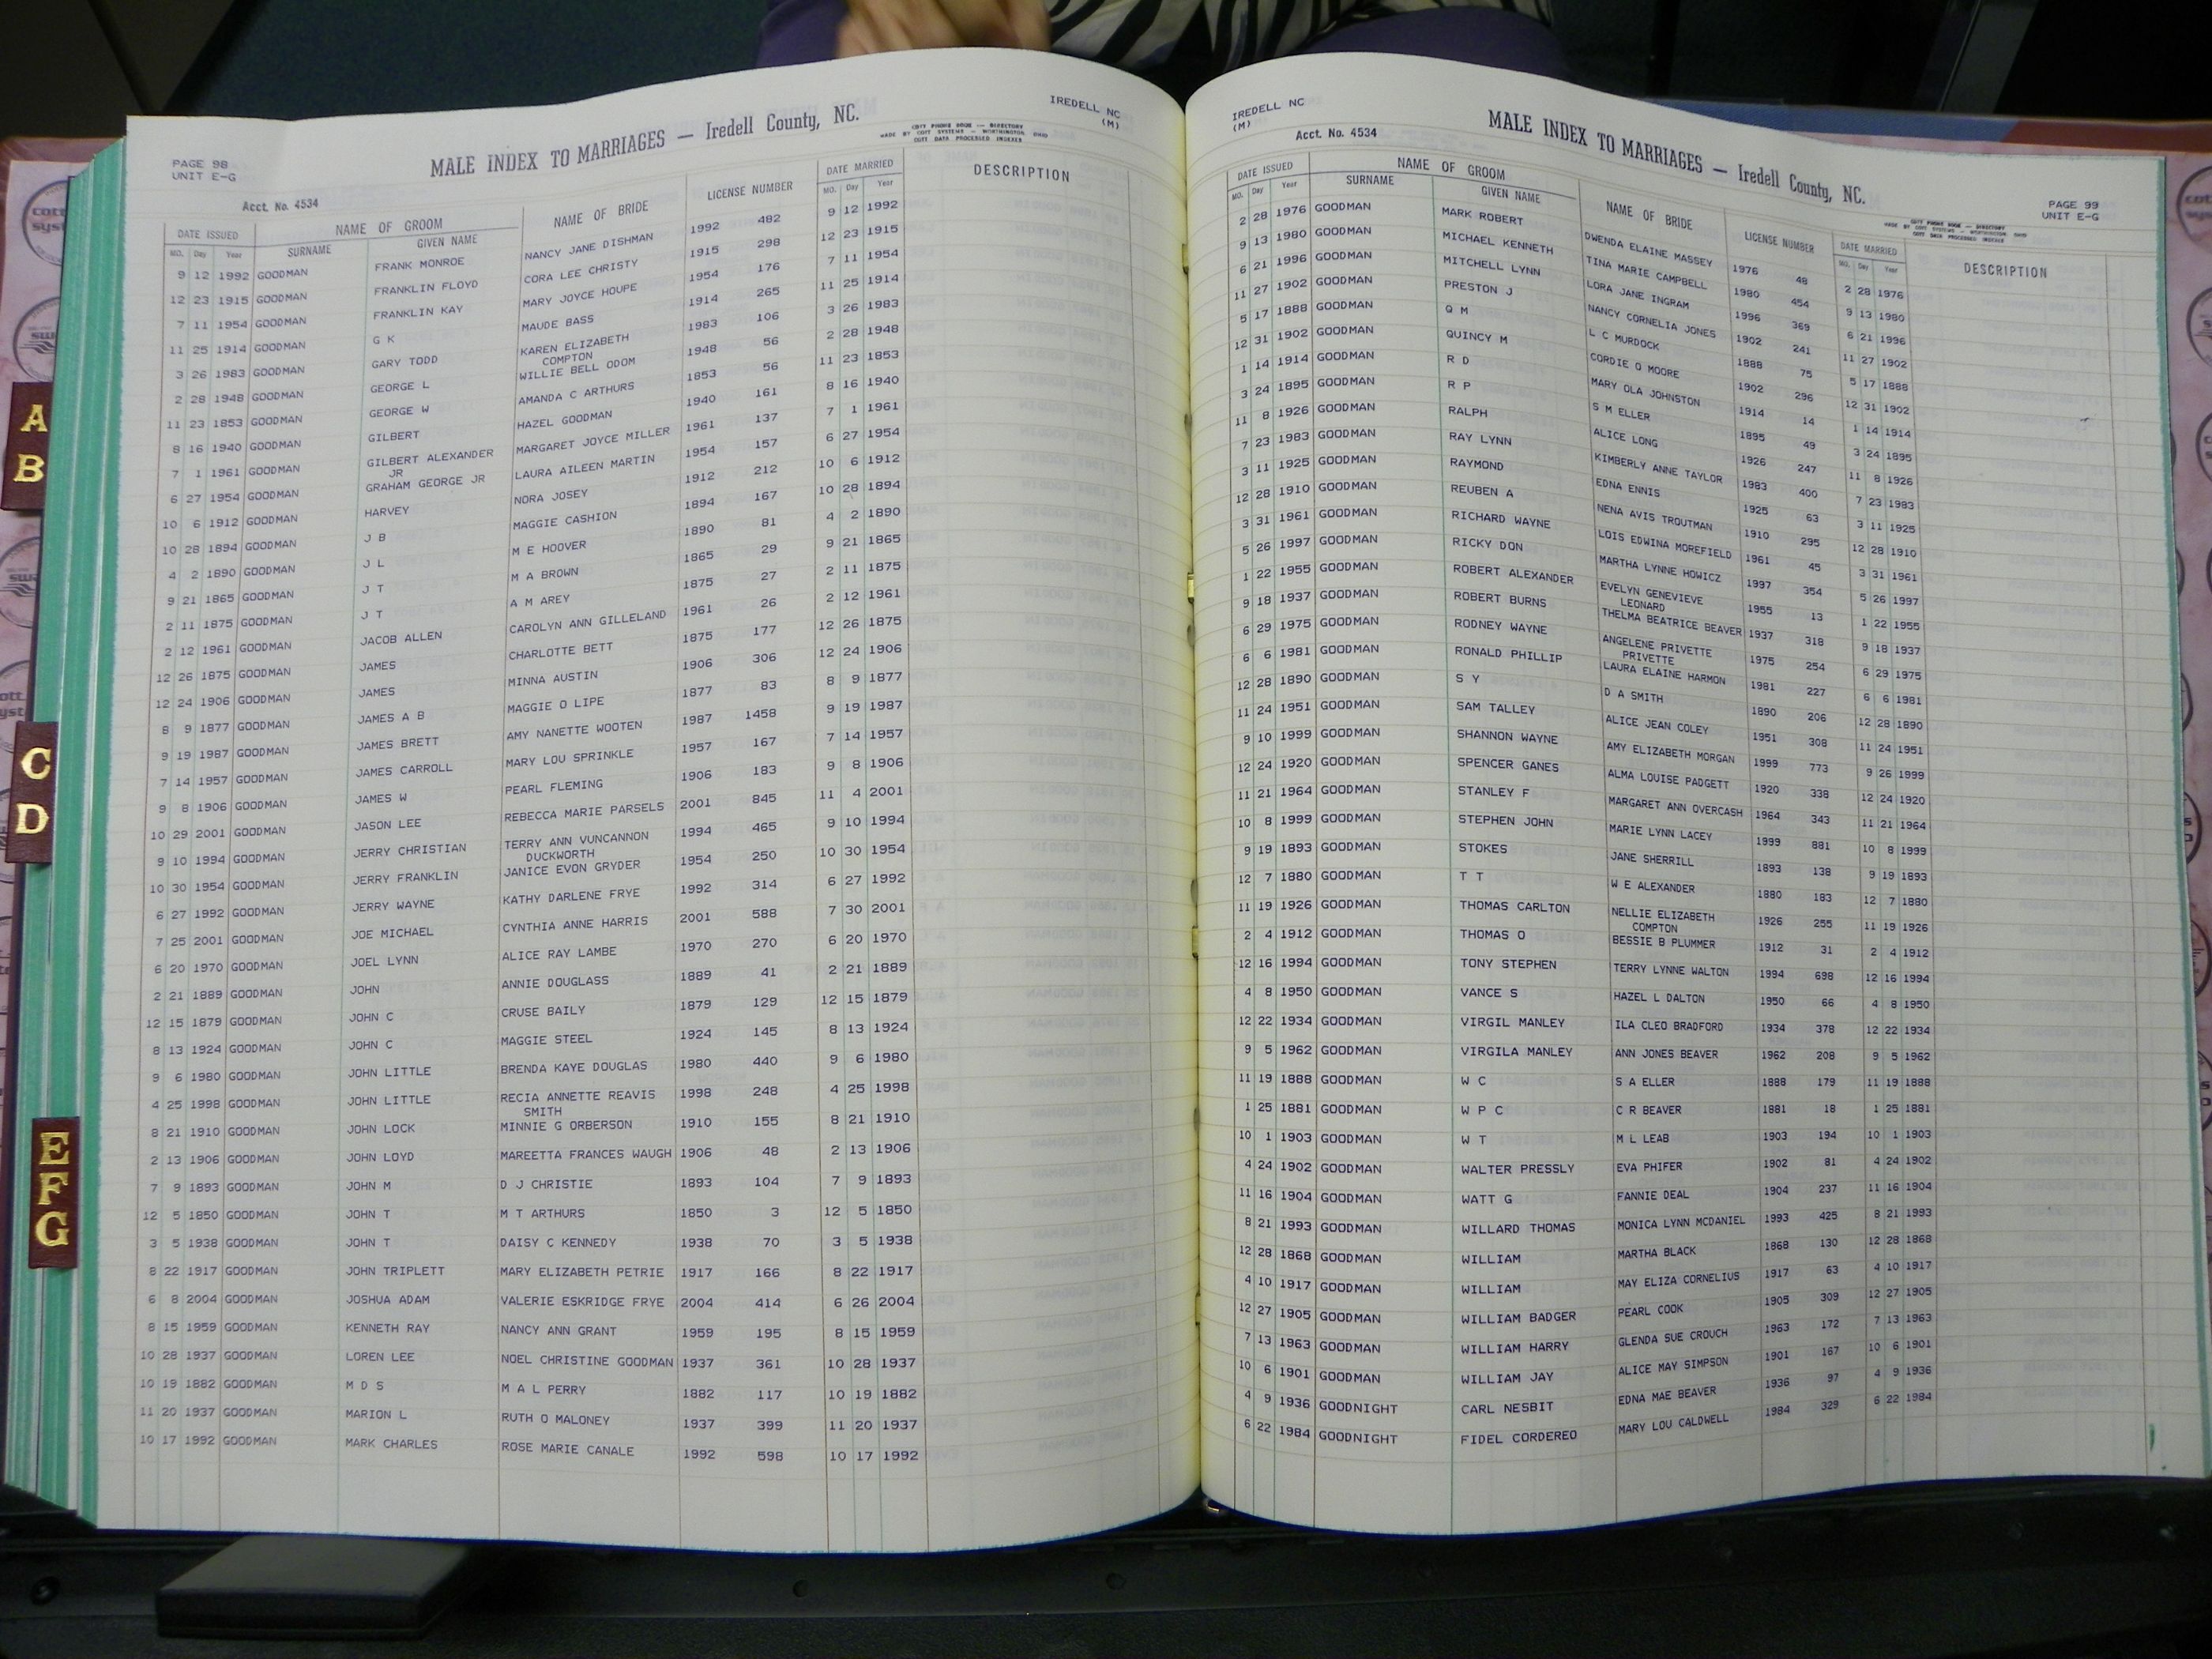 PAGE 98
UNIT E-G
IREDELL NC
(M)
MALE INDEX TO MARRIAGES — Iredell County, NC.
COTT PHONE BOOK — DIRECTORY
MADE BY COTT SYSTEMS — WORTHINGTON OHIO
COTT DATA PROCESSED INDEXES
Acct. No. 4534
DATE ISSUED NAME OF GROOM NAME OF BRIDE LICENSE NUMBER DATE MARRIED DESCRIPTION
MO. Day Year SURNAME GIVEN NAME MO. Day Year
9 12 1992 GOODMAN FRANK MONROE NANCY JANE DISHMAN 1992 482 9 12 1992
12 23 1915 GOODMAN FRANKLIN FLOYD CORA LEE CHRISTY 1915 298 12 23 1915
7 11 1954 GOODMAN FRANKLIN KAY MARY JOYCE HOUPE 1954 176 7 11 1954
11 25 1914 GOODMAN G K MAUDE BASS 1914 265 11 25 1914
3 26 1983 GOODMAN GARY TODD KAREN ELIZABETH 1983 106 3 26 1983
COMPTON
2 28 1948 GOODMAN GEORGE L WILLIE BELL ODOM 1948 56 2 28 1948
11 23 1853 GOODMAN GEORGE W AMANDA C ARTHURS 1853 56 11 23 1853
8 16 1940 GOODMAN GILBERT HAZEL GOODMAN 1940 161 8 16 1940
7 1 1961 GOODMAN GILBERT ALEXANDER MARGARET JOYCE MILLER 1961 137 7 1 1961
JR
6 27 1954 GOODMAN GRAHAM GEORGE JR LAURA AILEEN MARTIN 1954 157 6 27 1954
10 6 1912 GOODMAN HARVEY NORA JOSEY 1912 212 10 6 1912
10 28 1894 GOODMAN J B MAGGIE CASHION 1894 167 10 28 1894
4 2 1890 GOODMAN J L M E HOOVER 1890 81 4 2 1890
9 21 1865 GOODMAN J T M A BROWN 1865 29 9 21 1865
2 11 1875 GOODMAN J T A M AREY 1875 27 2 11 1875
2 12 1961 GOODMAN JACOB ALLEN CAROLYN ANN GILLELAND 1961 26 2 12 1961
12 26 1875 GOODMAN JAMES CHARLOTTE BETT 1875 177 12 26 1875
12 24 1906 GOODMAN JAMES MINNA AUSTIN 1906 306 12 24 1906
8 9 1877 GOODMAN JAMES A B MAGGIE O LIPE 1877 83 8 9 1877
9 19 1987 GOODMAN JAMES BRETT AMY NANETTE WOOTEN 1987 1458 9 19 1987
7 14 1957 GOODMAN JAMES CARROLL MARY LOU SPRINKLE 1957 167 7 14 1957
9 8 1906 GOODMAN JAMES W PEARL FLEMING 1906 183 9 8 1906
10 29 2001 GOODMAN JASON LEE REBECCA MARIE PARSELS 2001 845 11 4 2001
9 10 1994 GOODMAN JERRY CHRISTIAN TERRY ANN VUNCANNON 1994 465 9 10 1994
DUCKWORTH
10 30 1954 GOODMAN JERRY FRANKLIN JANICE EVON GRYDER 1954 250 10 30 1954
6 27 1992 GOODMAN JERRY WAYNE KATHY DARLENE FRYE 1992 314 6 27 1992
7 25 2001 GOODMAN JOE MICHAEL CYNTHIA ANNE HARRIS 2001 588 7 30 2001
6 20 1970 GOODMAN JOEL LYNN ALICE RAY LAMBE 1970 270 6 20 1970
2 21 1889 GOODMAN JOHN ANNIE DOUGLASS 1889 41 2 21 1889
12 15 1879 GOODMAN JOHN C CRUSE BAILY 1879 129 12 15 1879
8 13 1924 GOODMAN JOHN C MAGGIE STEEL 1924 145 8 13 1924
9 6 1980 GOODMAN JOHN LITTLE BRENDA KAYE DOUGLAS 1980 440 9 6 1980
4 25 1998 GOODMAN JOHN LITTLE RECIA ANNETTE REAVIS 1998 248 4 25 1998
SMITH
8 21 1910 GOODMAN JOHN LOCK MINNIE G ORBERSON 1910 155 8 21 1910
2 13 1906 GOODMAN JOHN LOYD MAREETTA FRANCES WAUGH 1906 48 2 13 1906
7 9 1893 GOODMAN JOHN M D J CHRISTIE 1893 104 7 9 1893
12 5 1850 GOODMAN JOHN T M T ARTHURS 1850 3 12 5 1850
3 5 1938 GOODMAN JOHN T DAISY C KENNEDY 1938 70 3 5 1938
8 22 1917 GOODMAN JOHN TRIPLETT MARY ELIZABETH PETRIE 1917 166 8 22 1917
6 8 2004 GOODMAN JOSHUA ADAM VALERIE ESKRIDGE FRYE 2004 414 6 26 2004
8 15 1959 GOODMAN KENNETH RAY NANCY ANN GRANT 1959 195 8 15 1959
10 28 1937 GOODMAN LOREN LEE NOEL CHRISTINE GOODMAN 1937 361 10 28 1937
10 19 1882 GOODMAN M D S M A L PERRY 1882 117 10 19 1882
11 20 1937 GOODMAN MARION L RUTH O MALONEY 1937 399 11 20 1937
10 17 1992 GOODMAN MARK CHARLES ROSE MARIE CANALE 1992 598 10 17 1992
IREDELL NC
(M)
Acct. No. 4534
MALE INDEX TO MARRIAGES — Iredell County, NC.
PAGE 99
UNIT E-G
COTT PHONE BOOK — DIRECTORY
MADE BY COTT SYSTEMS — WORTHINGTON OHIO
COTT DATA PROCESSED INDEXES
DATE ISSUED NAME OF GROOM NAME OF BRIDE LICENSE NUMBER DATE MARRIED DESCRIPTION
MO. Day Year SURNAME GIVEN NAME MO. Day Year
2 28 1976 GOODMAN MARK ROBERT DWENDA ELAINE MASSEY 1976 48 2 28 1976
9 13 1980 GOODMAN MICHAEL KENNETH TINA MARIE CAMPBELL 1980 454 9 13 1980
6 21 1996 GOODMAN MITCHELL LYNN LORA JANE INGRAM 1996 369 6 21 1996
11 27 1902 GOODMAN PRESTON J NANCY CORNELIA JONES 1902 241 11 27 1902
5 17 1888 GOODMAN Q M L C MURDOCK 1888 75 5 17 1888
12 31 1902 GOODMAN QUINCY M CORDIE O MOORE 1902 296 12 31 1902
1 14 1914 GOODMAN R D MARY OLA JOHNSTON 1914 14 1 14 1914
3 24 1895 GOODMAN R P S M ELLER 1895 49 3 24 1895
11 8 1926 GOODMAN RALPH ALICE LONG 1926 247 11 8 1926
7 23 1983 GOODMAN RAY LYNN KIMBERLY ANNE TAYLOR 1983 400 7 23 1983
3 11 1925 GOODMAN RAYMOND EDNA ENNIS 1925 63 3 11 1925
12 28 1910 GOODMAN REUBEN A NENA AVIS TROUTMAN 1910 295 12 28 1910
3 31 1961 GOODMAN RICHARD WAYNE LOIS EDWINA MOREFIELD 1961 45 3 31 1961
5 26 1997 GOODMAN RICKY DON MARTHA LYNNE HOWICZ 1997 354 5 26 1997
1 22 1955 GOODMAN ROBERT ALEXANDER EVELYN GENEVIEVE 1955 13 1 22 1955
LEONARD
9 18 1937 GOODMAN ROBERT BURNS THELMA BEATRICE BEAVER 1937 318 9 18 1937
6 29 1975 GOODMAN RODNEY WAYNE ANGELENE PRIVETTE 1975 254 6 29 1975
PRIVETTE
6 6 1981 GOODMAN RONALD PHILLIP LAURA ELAINE HARMON 1981 227 6 6 1981
12 28 1890 GOODMAN S Y D A SMITH 1890 206 12 28 1890
11 24 1951 GOODMAN SAM TALLEY ALICE JEAN COLEY 1951 308 11 24 1951
9 10 1999 GOODMAN SHANNON WAYNE AMY ELIZABETH MORGAN 1999 773 9 26 1999
12 24 1920 GOODMAN SPENCER GANES ALMA LOUISE PADGETT 1920 338 12 24 1920
11 21 1964 GOODMAN STANLEY F MARGARET ANN OVERCASH 1964 343 11 21 1964
10 8 1999 GOODMAN STEPHEN JOHN MARIE LYNN LACEY 1999 881 10 8 1999
9 19 1893 GOODMAN STOKES JANE SHERRILL 1893 138 9 19 1893
12 7 1880 GOODMAN T T W E ALEXANDER 1880 183 12 7 1880
11 19 1926 GOODMAN THOMAS CARLTON NELLIE ELIZABETH 1926 255 11 19 1926
COMPTON
2 4 1912 GOODMAN THOMAS O BESSIE B PLUMMER 1912 31 2 4 1912
12 16 1994 GOODMAN TONY STEPHEN TERRY LYNNE WALTON 1994 698 12 16 1994
4 8 1950 GOODMAN VANCE S HAZEL L DALTON 1950 66 4 8 1950
12 22 1934 GOODMAN VIRGIL MANLEY ILA CLEO BRADFORD 1934 378 12 22 1934
9 5 1962 GOODMAN VIRGILA MANLEY ANN JONES BEAVER 1962 208 9 5 1962
11 19 1888 GOODMAN W C S A ELLER 1888 179 11 19 1888
1 25 1881 GOODMAN W P C C R BEAVER 1881 18 1 25 1881
10 1 1903 GOODMAN W T M L LEAB 1903 194 10 1 1903
4 24 1902 GOODMAN WALTER PRESSLY EVA PHIFER 1902 81 4 24 1902
11 16 1904 GOODMAN WATT G FANNIE DEAL 1904 237 11 16 1904
8 21 1993 GOODMAN WILLARD THOMAS MONICA LYNN MCDANIEL 1993 425 8 21 1993
12 28 1868 GOODMAN WILLIAM MARTHA BLACK 1868 130 12 28 1868
4 10 1917 GOODMAN WILLIAM MAY ELIZA CORNELIUS 1917 63 4 10 1917
12 27 1905 GOODMAN WILLIAM BADGER PEARL COOK 1905 309 12 27 1905
7 13 1963 GOODMAN WILLIAM HARRY GLENDA SUE CROUCH 1963 172 7 13 1963
10 6 1901 GOODMAN WILLIAM JAY ALICE MAY SIMPSON 1901 167 10 6 1901
4 9 1936 GOODNIGHT CARL NESBIT EDNA MAE BEAVER 1936 97 4 9 1936
6 22 1984 GOODNIGHT FIDEL CORDEREO MARY LOU CALDWELL 1984 329 6 22 1984
A
B
C
D
E
F
G